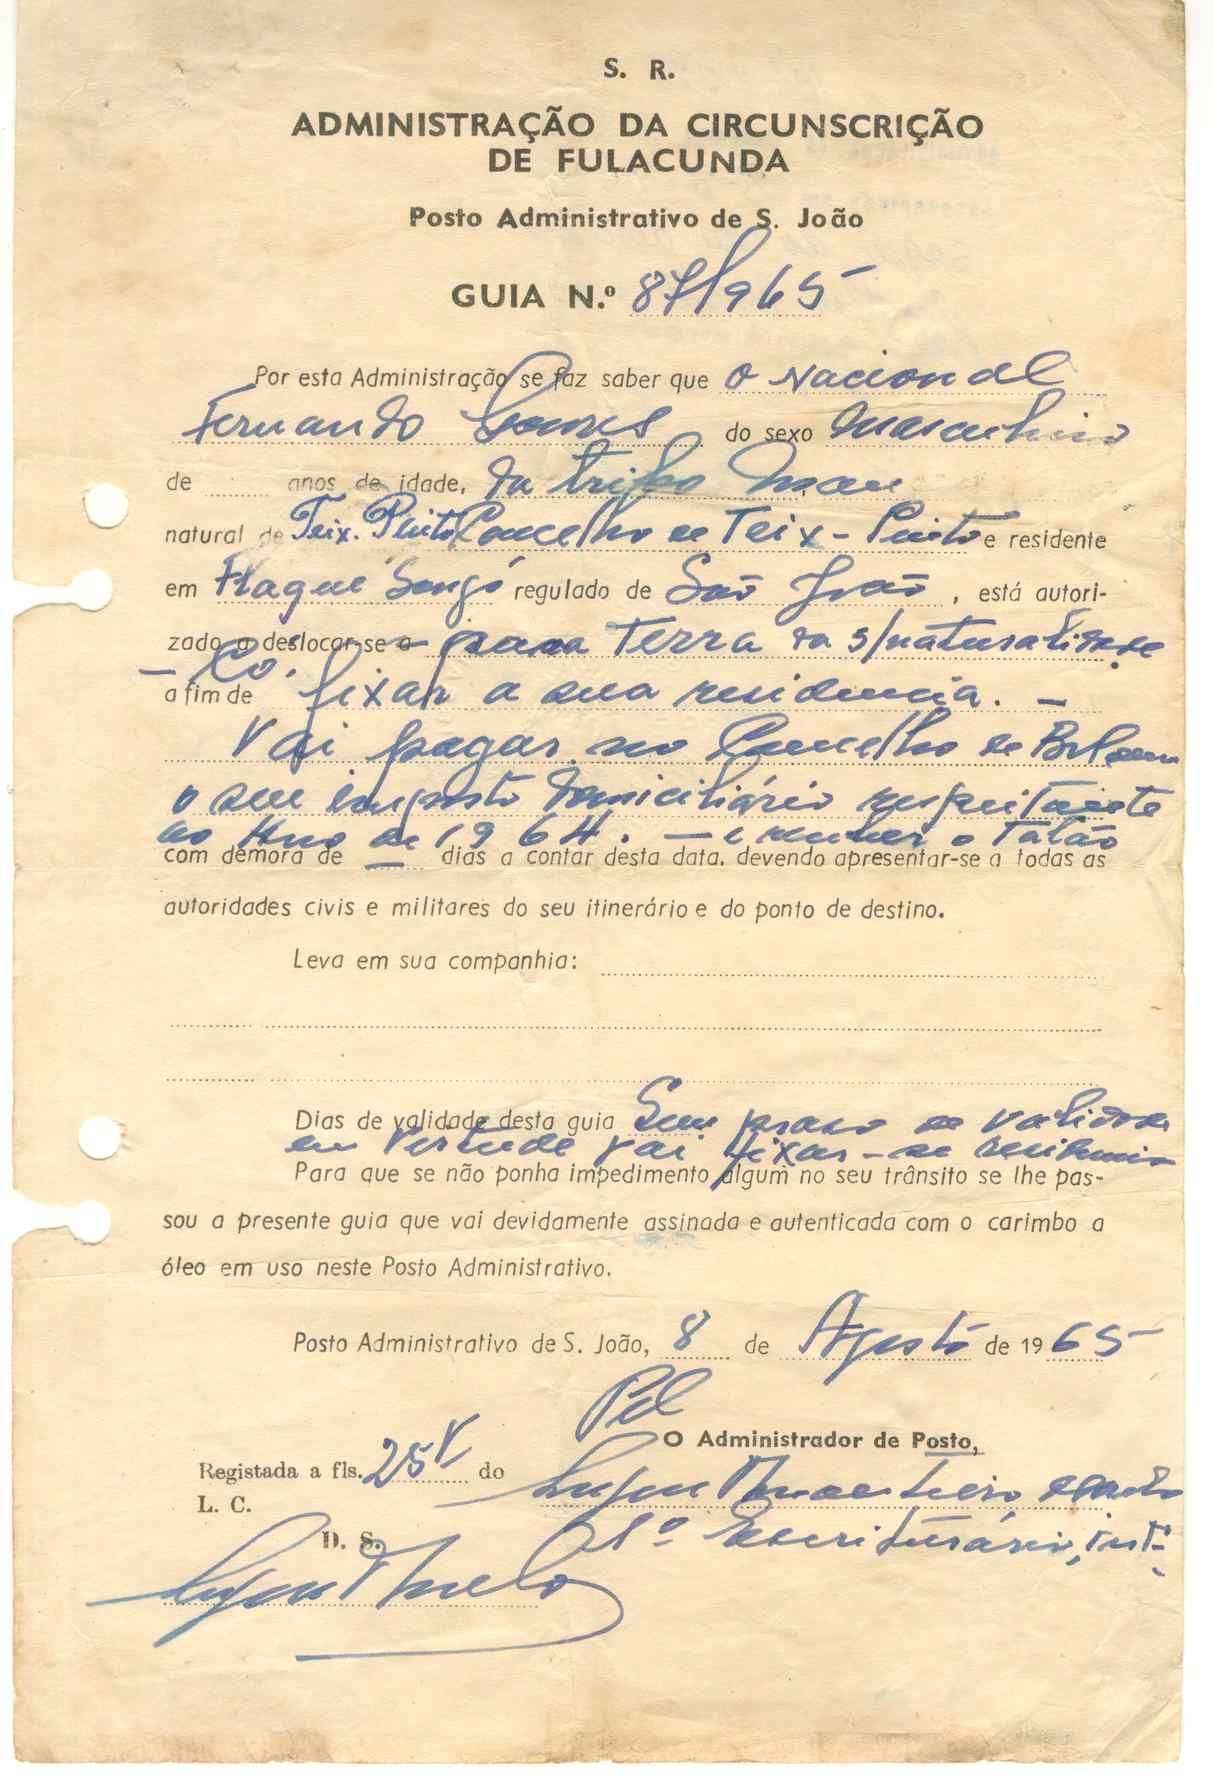 S. R.
ADMINISTRAÇÃO DA CIRCUNSCRIÇÃO
DE FULACUNDA
Posto Administrativo de S. João
GUIA N.º 87/965
Por esta Administração se faz saber que o Nacional
Fernando Gomes do sexo masculino
de anos de idade, da tribo
natural de Teix. Pinto Concelho de Teix-Pinto e residente
em regulado de São João, está autori-
zado a deslocar-se a para Terra da s/naturalidade
- Co.
a fim de fixar a sua residencia. -
Vai pagar no Concelho de
o seu imposto domiciliário respeitante
ao Ano de 1964. - o Talão
com demora de — dias a contar desta data, devendo apresentar-se a todas as
autoridades civis e militares do seu itinerário e do ponto de destino.
Leva em sua companhia:
Dias de validade desta guia Sem praso de validade
em vertude vai fixar-se
Para que se não ponha impedimento algum no seu trânsito se lhe pas-
sou a presente guia que vai devidamente assinada e autenticada com o carimbo a
óleo em uso neste Posto Administrativo.
Posto Administrativo de S. João, 8 de Agosto de 1965
Pel
O Administrador de Posto,
Registada a fls. 25V do
L. C.
D. S.
1º Escriturário, intº